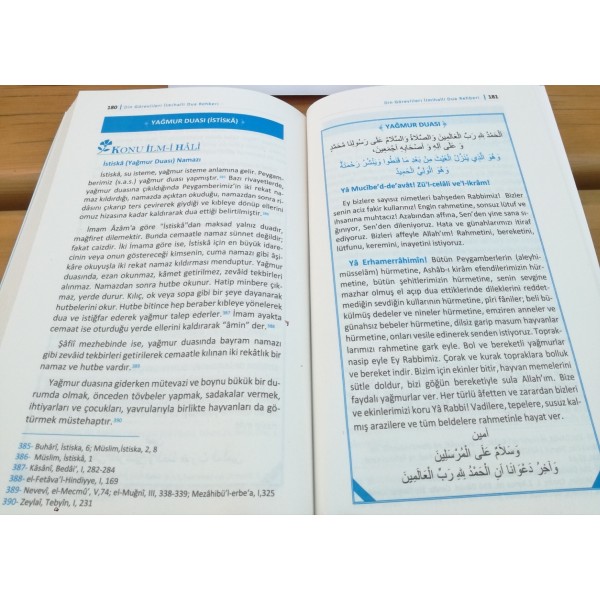 180 | Din Görevlileri İlmihalli Dua Rehberi
YAĞMUR DUASI (İSTİSKÂ)
KONU İLM-İ HÂLİ
İstiskâ (Yağmur Duası) Namazı
İstiskâ, su isteme, yağmur isteme anlamına gelir. Peygam-
berimiz (s.a.s.) yağmur duası yapmıştır. Bazı rivayetlerde,
yağmur duasına çıkıldığında Peygamberimiz'in iki rekat na-
maz kıldırdığı, namazda açıktan okuduğu, namazdan sonra ri-
dâsını çıkarıp ters çevirerek giydiği ve kıbleye dönüp ellerini
omuz hizasına kadar kaldırarak dua ettiği belirtilmiştir.
İmam Âzam'a göre "İstiskâ"dan maksad yalnız duadır,
mağfiret dilemektir. Bundan dolayı cemaatle namaz sünnet değildir,
fakat caizdir. İki İmama göre ise, İstiskâ için en büyük idare-
cinin veya onun göstereceği kimsenin, cuma namazı gibi âşi-
kâre okuyuşla iki rekat namaz kıldırması menduptur. Yağmur
duasında, ezan okunmaz, kâmet getirilmez, zevaid tekbirleri
alınmaz. Namazdan sonra hutbe okunur. Hatip minbere çık-
maz, yerde durur. Kılıç, ok veya sopa gibi bir şeye dayanarak
hutbelerini okur. Hutbe bitince hep beraber kıbleye yönelerek
dua ve istiğfar ederek yağmur talep ederler.387 İmam ayakta
cemaat ise oturduğu yerde ellerini kaldırarak "âmin" der.388
Şâfiî mezhebinde ise, yağmur duasında bayram namazı
gibi zevâid tekbirleri getirilerek cemaatle kılınan iki rekâtlık bir
namaz ve hutbe vardır.389
Yağmur duasına giderken mütevazi ve boynu bükük bir du-
rumda olmak, önceden tövbeler yapmak, sadakalar vermek,
ihtiyarları ve çocukları, yavrularıyla birlikte hayvanları da gö-
türmek müstehaptır.390
385- Buhârî, İstiska, 6; Müslim,İstiska, 2, 8
386- Müslim, İstiskâ, 1
387- Kâsânî, Bedâi', I, 282-284
388- el-Fetâva'l-Hindiyye, I, 169
389- Nevevî, el-Mecmû', V,74; el-Muğnî, III, 338-339; Mezâhibü'l-erbe'a, I,325
390- Zeylaî, Tebyîn, I, 231
Din Görevlileri İlmihalli Dua Rehberi | 181
YAĞMUR DUASI
اَلْحَمْدُ لِلّٰهِ رَبِّ الْعَالَمِينَ وَالصَّلَاةُ وَالسَّلَامُ عَلَى رَسُولِنَا مُحَمَّدٍ
وَ عَلَى اٰلِهِ وَ اَصْحَابِهِ اَجْمَعِينَ،
وَهُوَ الَّذِي يُنَزِّلُ الْغَيْثَ مِنْ بَعْدِ مَا قَنَطُوا وَيَنْشُرُ رَحْمَتَهُ
وَهُوَ الْوَلِيُّ الْحَمِيدُ
Yâ Mucîbe'd-de'avât! Zü'l-celâli ve'l-ikrâm!
Ey bizlere sayısız nimetleri bahşeden Rabbimiz! Bizler
senin aciz fakir kullarınız! Engin rahmetine, sonsuz lütuf ve
ihsanına muhtacız! Azabından affına, Sen'den yine sana sı-
ğınıyoruz, Sen'den dileniyoruz. Hata ve günahlarımızı itiraf
ediyoruz. Bizleri affeyle Allah'ım! Rahmetini, bereketini,
lütfunu, keremini, inayetini istiyoruz.
Yâ Erhamerrâhimîn! Bütün Peygamberlerin (aleyhi-
müsselâm) hürmetine, Ashâb-ı kirâm efendilerimizin hür-
metine, bütün şehitlerimizin hürmetine, senin sevgine
mazhar olmuş el açıp dua ettiklerinde dileklerini reddet-
mediğin sevdiğin kullarının hürmetine, pîri fâniler, beli bü-
külmüş dedeler ve nineler hürmetine, emziren anneler ve
günahsız bebeler hürmetine, dilsiz garip masum hayvanlar
hürmetine, onları vesile edinerek senden istiyoruz. Toprak-
larımızı rahmetine gark eyle. Bol ve bereketli yağmurlar
nasip eyle Ey Rabbimiz. Çorak ve kurak topraklara bolluk
ve bereket indir. Bizim için ekinler bitir, hayvan memelerini
sütle doldur, bizi göğün bereketiyle sula Allah'ım. Bize
faydalı yağmurlar ver. Her türlü afetten ve zarardan bizleri
ve ekinlerimizi koru Yâ Rabbi! Vadilere, tepelere, susuz kal-
mış arazilere ve tüm beldelere rahmetinle hayat ver.
اٰمين
وَسَلَامٌ عَلَى الْمُرْسَلِينَ
وَ اٰخِرُ دَعْوَانَا اَنِ الْحَمْدُ لِلّٰهِ رَبِّ الْعَالَمِينَ